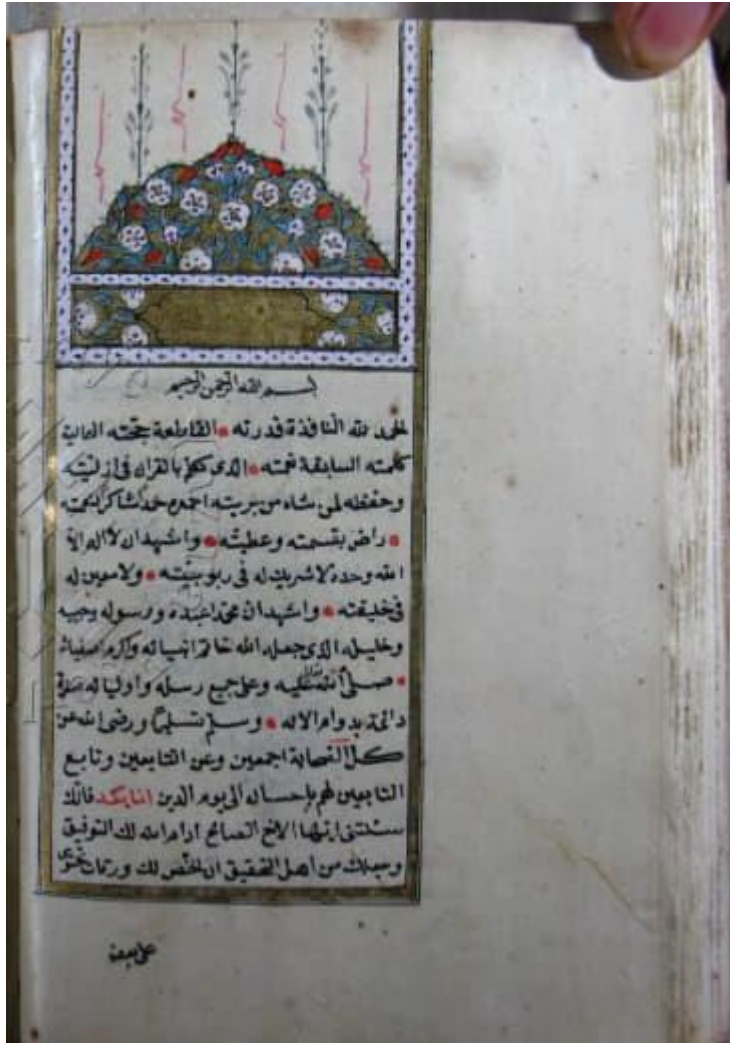 بسم الله الرحمن الرحيم
الحمد لله النافذة قدرته القاطعة حجته العالية
كلمته السابقة نعمته الذى تكلم بالقران فى ازليته
وحفظه لمن شاء من بريته احمده حمد شاكر لنعمته
راض بقسمته وعطيته واشهد ان لا اله الا
الله وحده لا شريك له فى ربوبيته ولا معين له
فى خليقته واشهد ان محمدا عبده ورسوله وحبيبه
وخليله الذى جعله الله خاتم انبيائه واكرم اصفيائه
صلى الله عليه وعلى جميع رسله واوليائه صلاة
دائمة بدوام الائه وسلم تسليما ورضى الله عن
كل الصحابة اجمعين وعن التابعين وتابع
التابعين لهم بإحسان الى يوم الدين اما بعد فانك
سئلتنى ايها الاخ الصالح ادام الله لك التوفيق
وجعلك من اهل التحقيق ان الخص لك ورقات تحتوى
على بعض